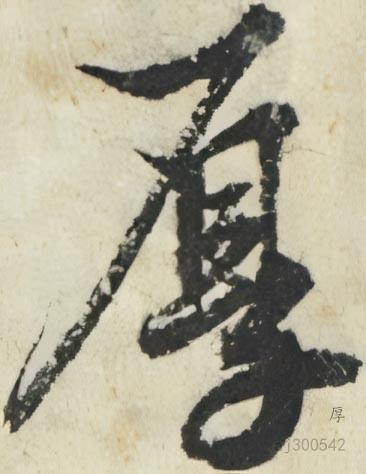 厚
厚
j300542